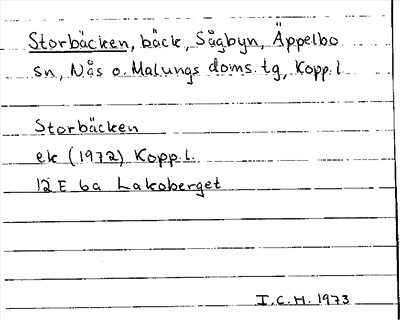 Storbäcken, bäck, Sågbyn, Äppelbo
sn, Nås o. Malungs doms. tg, Kopp. l.
Storbäcken
ek (1972) Kopp. l.
12 E 6a Lakoberget
I.C.H. 1973